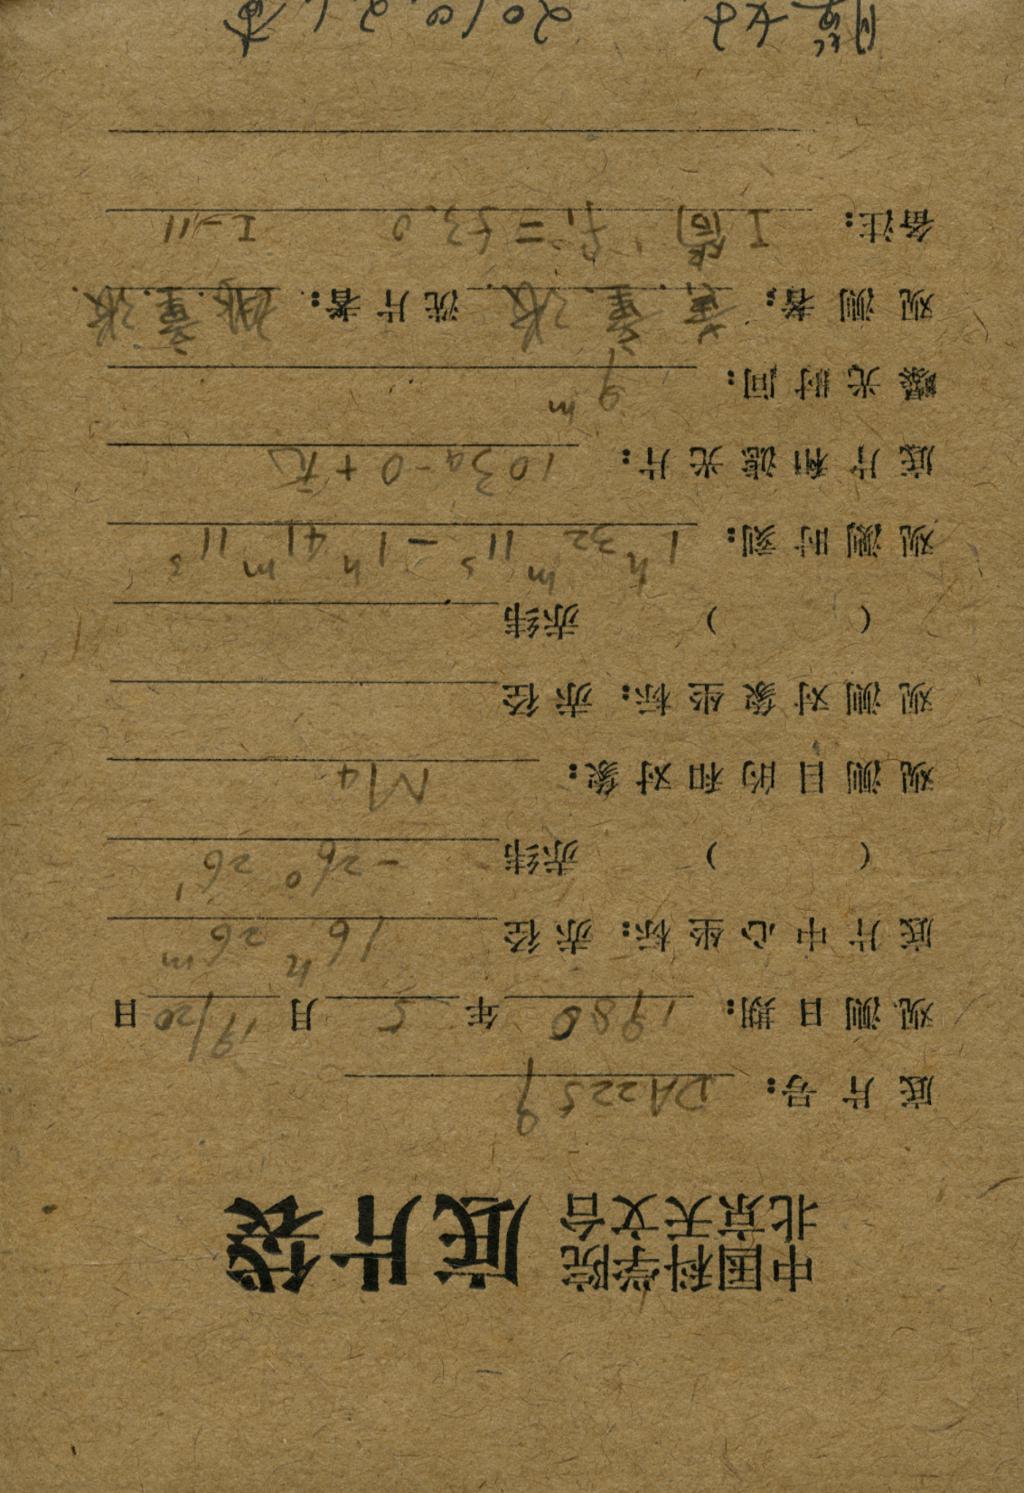 中国科学院
北京天文台 底片袋
底片号： DA2259
观测日期： 1980 年 5 月 19/20 日
底片中心坐标：赤径 16h 26m
（ ） 赤纬 -26° 26′
观测目的和对象： M4
观测对象坐标：赤径
（ ） 赤纬
观测时刻： 1h32m11s-1h41m11s
底片和滤光片： 103a-O+无
曝光时间： 9m
观测者： 洗片者：
备注： I 筒 f₁=53.0 I-111